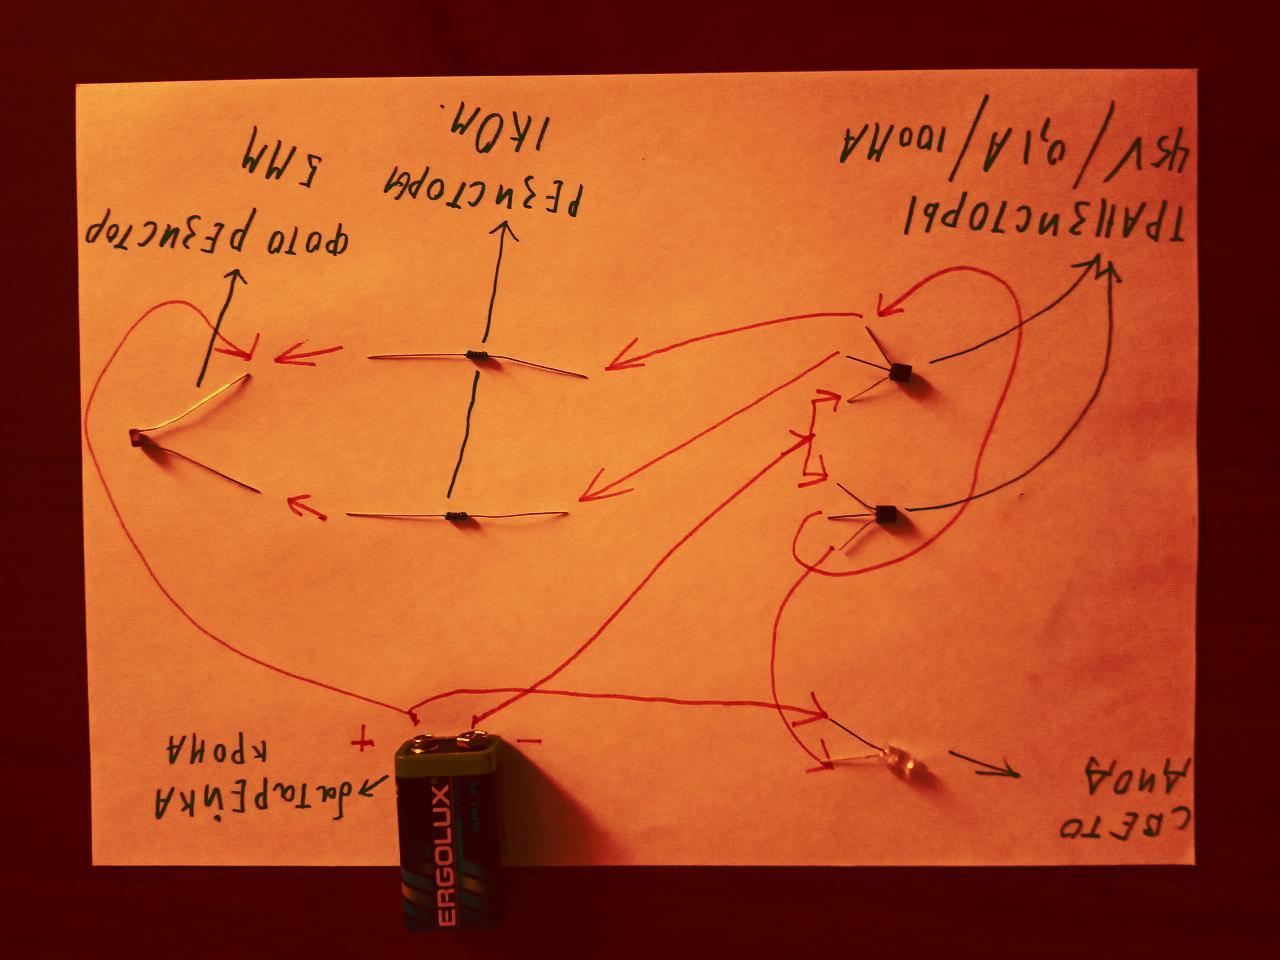 СВЕТО
ДИОД
батарейка
крона
ERGOLUX
−
+
ТРАНЗИСТОРЫ
45V / 0,1А / 100МА
РЕЗИСТОРЫ
1кОм.
ФОТО РЕЗИСТОР
5 ММ